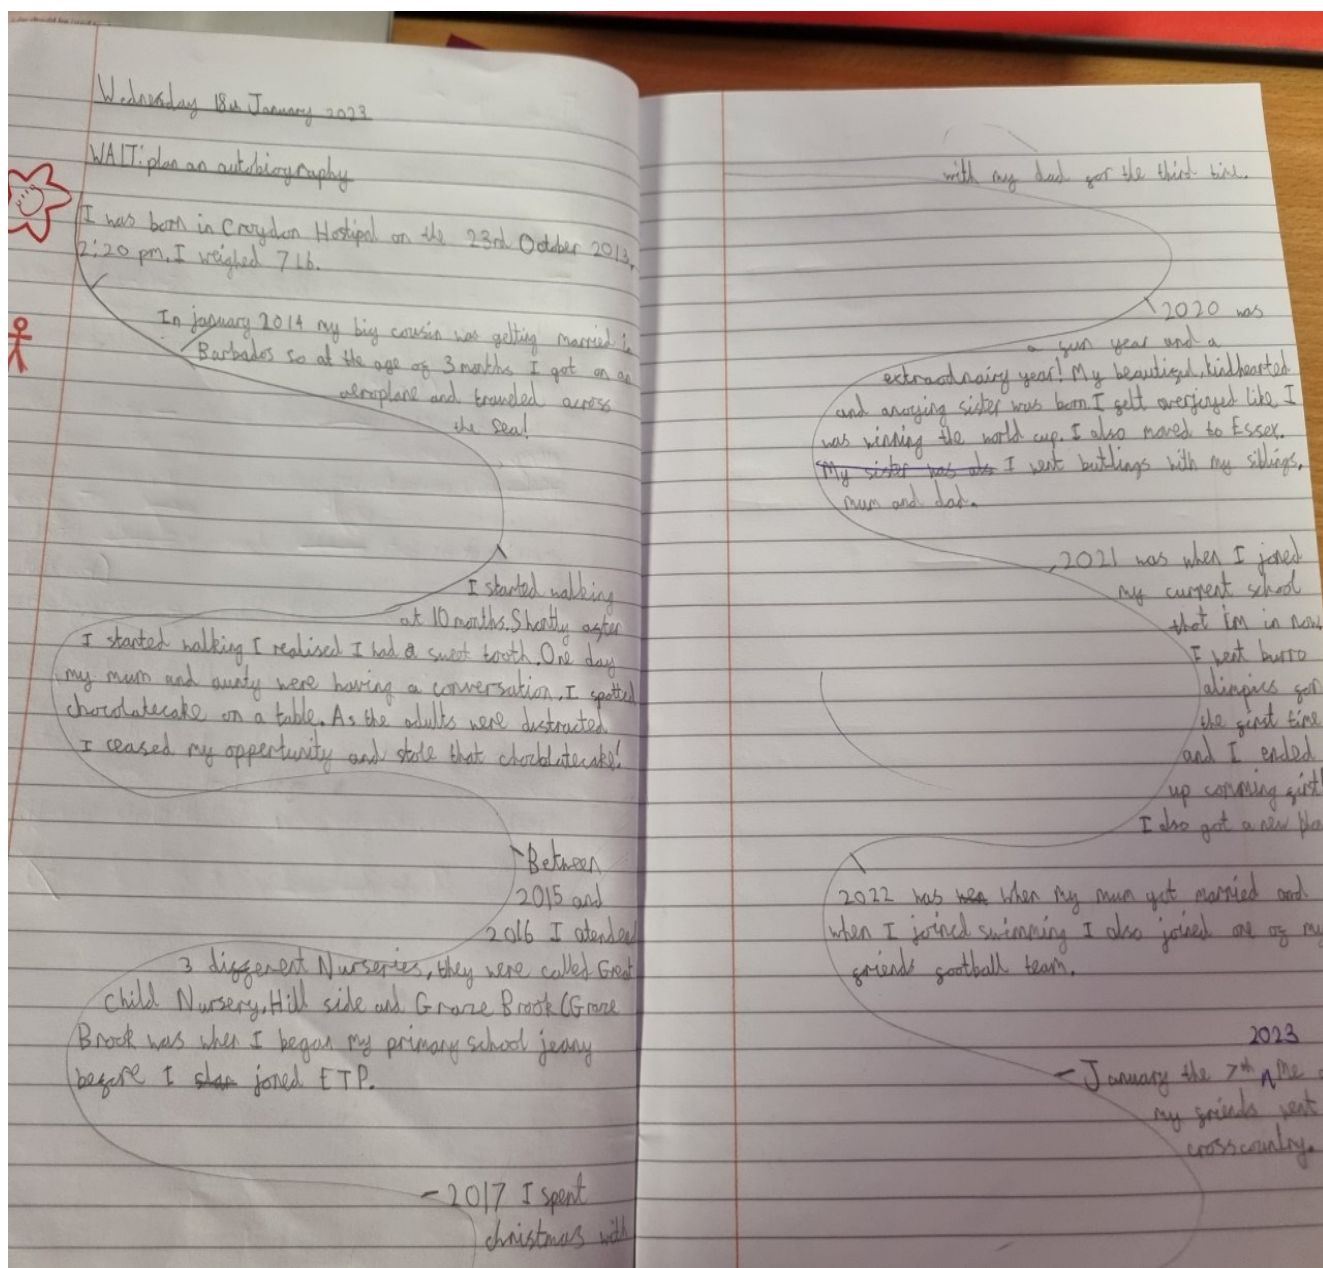 Wednesday 18th January 2023
WALT: plan an autobiography
I was born in Croydon Hostipal on the 23rd October 2013,
2:20 pm. I weighed 7 Lb.
In january 2014 my big cousin was getting married in
Barbados so at the age of 3 months I got on an
aeroplane and traveled across
the Sea!
I started walking
at 10 months. Shortly after
I started walking I realised I had a sweet tooth. One day
my mum and aunty were having a conversation. I spotted
chocolatecake on a table. As the adults were distracted
I ceased my oppertunity and stole that chocolatecake!
Between
2015 and
2016 I atended
3 different Nurseries, they were called Great
Child Nursery, Hill side and Graze Brook (Graze
Brook was when I began my primary school jeany
before I joned ETP.
2017 I spent
christmas with
with my dad for the third time.
2020 was
a fun year and a
extraodnairy year! My beautiful, kindhearted
and anoying sister was born. I felt overjoyed like I
was winning the world cup. I also moved to Essex.
My sister was als I went butlings with my siblings,
mum and dad.
2021 was when I joned
my current school
that i'm in now
I went burro
alimpics for
the first time
and I ended
up comming first!
I also got a new
2022 was when my mum got married and
when I joined swimming I also joined one of my
friends football team.
2023
January the 7th Me
my friends went
crosscountry.